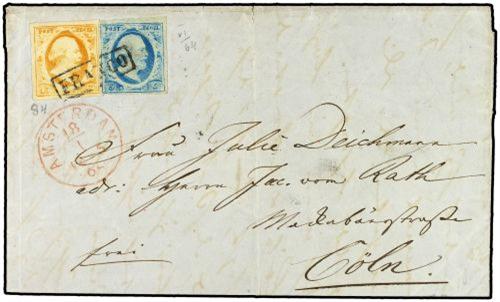 POST ZEGEL POST ZEGEL
FRANCO
84
AMSTERDAM
18
1
Frau Julie Deichmann
adr: Herrn Jac. vom Rath
frei
Cöln.